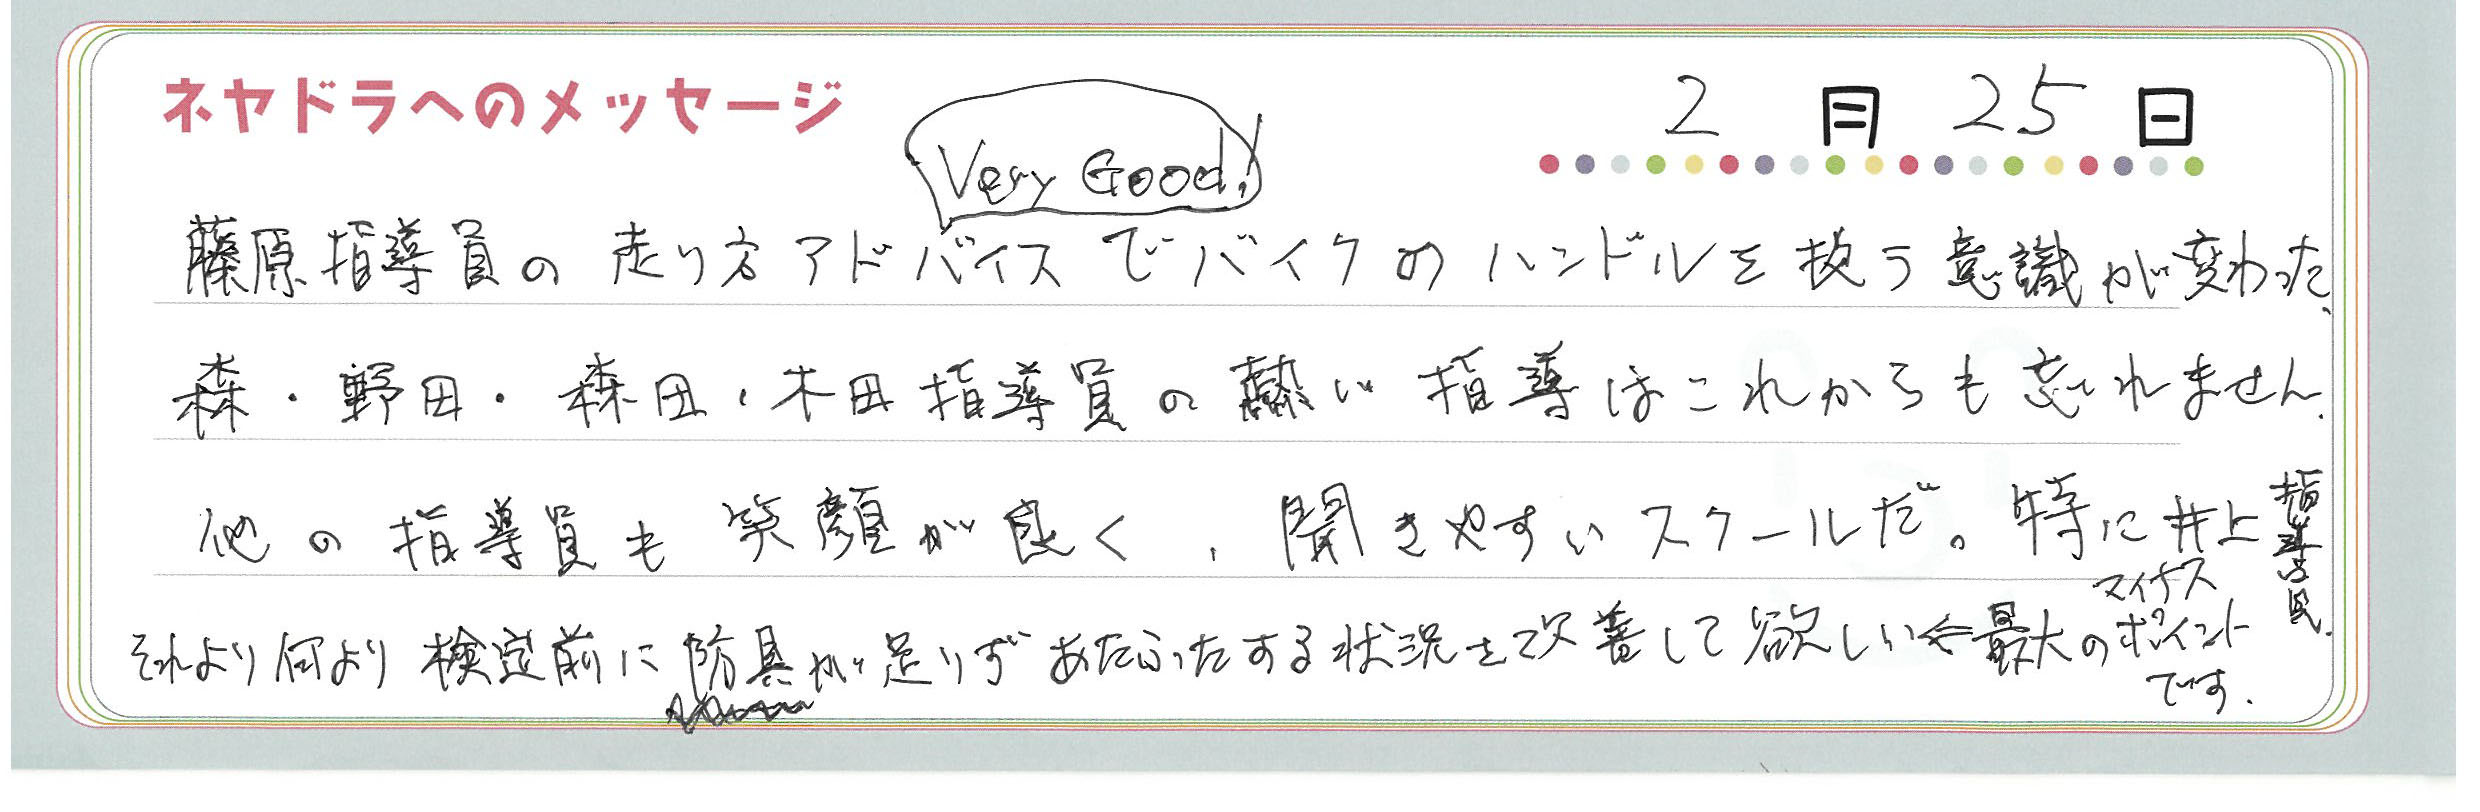 ネヤドラへのメッセージ
2月25日
Very Good!
藤原指導員の走り方アドバイスでバイクのハンドルを扱う意識が変わった.
森・野田・森田・木田指導員の熱い指導はこれからも忘れません.
他の指導員も笑顔が良く、聞きやすいスクールだ。特に井上指導員.
それより何より検定前に防具が足りずあたふたする状況を改善して欲しい⇐最大のマイナスポイント
です.